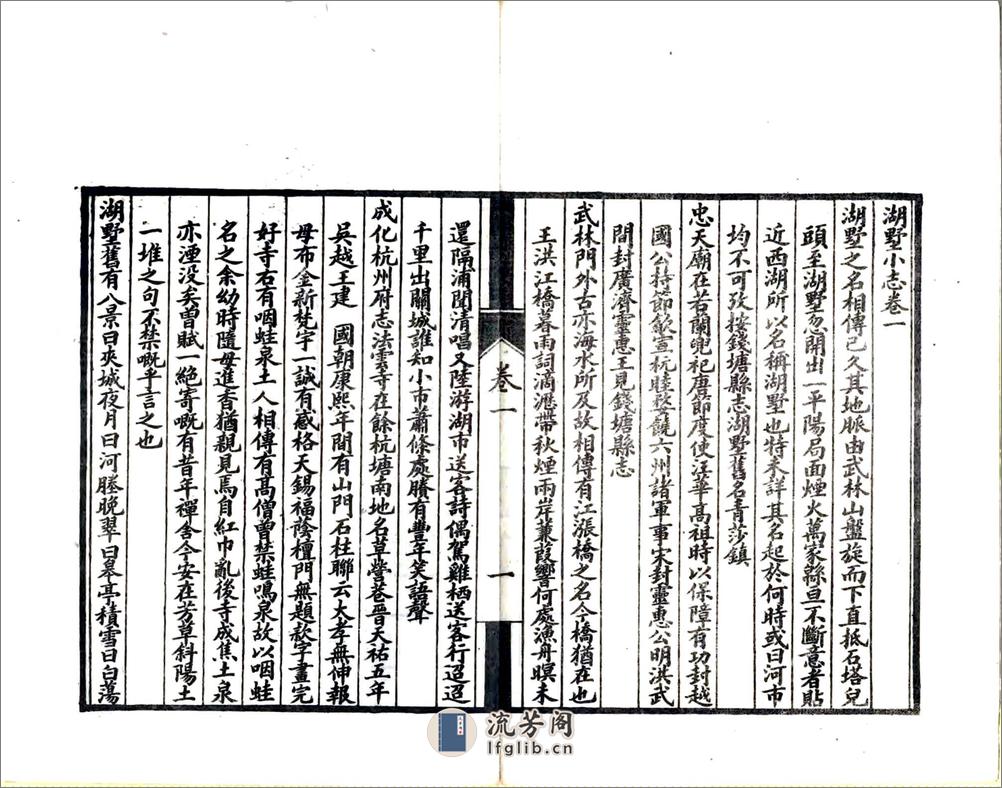 湖墅小志卷一
湖墅之名相傳已久其地脈由武林山盤旋而下直抵石塔兒
頭至湖墅忽開出一平陽局面煙火萬家緜亘不斷意者貼
近西湖所以名稱湖墅也特未詳其名起於何時或曰河市
均不可攷按錢塘縣志湖墅舊名青莎鎮
忠天廟在若蘭兜祀唐節度使汪華高祖時以保障有功封越
國公持節歙宣杭睦婺饒六州諸軍事宋封靈惠公明洪武
間封廣濟靈惠王見錢塘縣志
武林門外古亦海水所及故相傳有江漲橋之名今橋猶在也
王洪江橋暮雨詞滴瀝帶秋煙兩岸蒹葭響何處漁舟暝未
還隔浦聞清唱又陸游湖市送客詩偶駕雞栖送客行迢迢
千里出關城誰知小市蕭條處賸有豐年笑語聲
成化杭州府志法雲寺在餘杭塘南地名草營巷晉天祐五年
吳越王建　國朝康熙年間有山門石柱聯云大孝無伸報
母布金新梵宇一誠有感格天錫福蔭檀門無題欵字畫完
好寺右有咽蛙泉土人相傳有高僧曾禁蛙鳴泉故以咽蛙
名之余幼時隨母進香猶親見焉自紅巾亂後寺成焦土泉
亦湮没矣曾賦一絕寄嘅有昔年禪舍今安在芳草斜陽土
一堆之句不禁嘅乎言之也
湖墅舊有八景曰夾城夜月曰河塍晚翠曰皋亭積雪曰白蕩
卷一
一
流芳阁
lfglib.cn